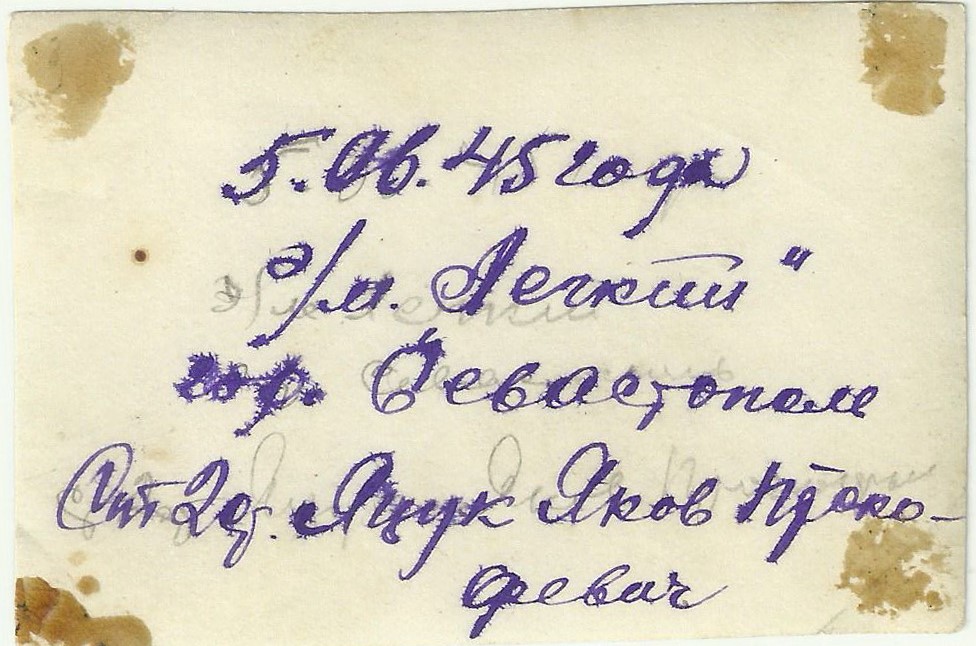 5. Ав. 45 года
э/м. Легкий"
гор. Севастополе
Ст 2ст. Яцук Яков Проко-
февич